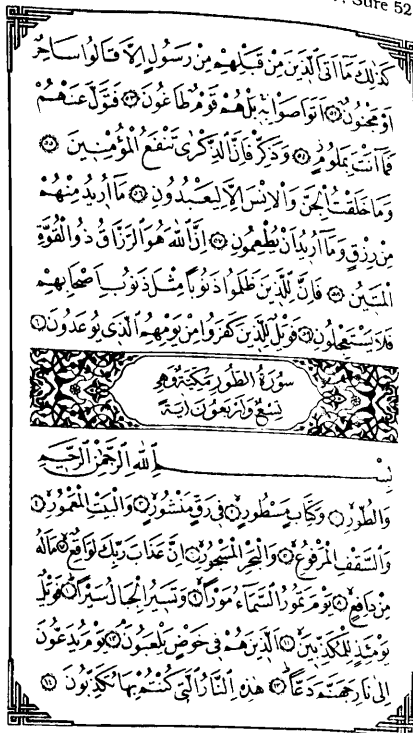 Sure 52
كَذٰلِكَ مَٓا اَتَى الَّذٖينَ مِنْ قَبْلِهِمْ مِنْ رَسُولٍ اِلَّا قَالُوا سَاحِرٌ
اَوْ مَجْنُونٌ ﴿٥٢﴾ اَتَوَاصَوْا بِهٖ بَلْ هُمْ قَوْمٌ طَاغُونَ ﴿٥٣﴾ فَتَوَلَّ عَنْهُمْ
فَمَٓا اَنْتَ بِمَلُومٍ ﴿٥٤﴾ وَذَكِّرْ فَاِنَّ الذِّكْرٰى تَنْفَعُ الْمُؤْمِنٖينَ ﴿٥٥﴾
وَمَا خَلَقْتُ الْجِنَّ وَالْاِنْسَ اِلَّا لِيَعْبُدُونِ ﴿٥٦﴾ مَٓا اُرٖيدُ مِنْهُمْ
مِنْ رِزْقٍ وَمَٓا اُرٖيدُ اَنْ يُطْعِمُونِ ﴿٥٧﴾ اِنَّ اللّٰهَ هُوَ الرَّزَّاقُ ذُو الْقُوَّةِ
الْمَتٖينُ ﴿٥٨﴾ فَاِنَّ لِلَّذٖينَ ظَلَمُوا ذَنُوبًا مِثْلَ ذَنُوبِ اَصْحَابِهِمْ
فَلَا يَسْتَعْجِلُونِ ﴿٥٩﴾ فَوَيْلٌ لِلَّذٖينَ كَفَرُوا مِنْ يَوْمِهِمُ الَّذٖي يُوعَدُونَ ﴿٦٠﴾
سُورَةُ الطُّورِ مَكِّيَّةٌ وَهِيَ
تِسْعٌ وَاَرْبَعُونَ اٰيَةً
بِسْمِ اللّٰهِ الرَّحْمٰنِ الرَّحٖيمِ
وَالطُّورِ ﴿١﴾ وَكِتَابٍ مَسْطُورٍ ﴿٢﴾ فٖي رَقٍّ مَنْشُورٍ ﴿٣﴾ وَالْبَيْتِ الْمَعْمُورِ ﴿٤﴾
وَالسَّقْفِ الْمَرْفُوعِ ﴿٥﴾ وَالْبَحْرِ الْمَسْجُورِ ﴿٦﴾ اِنَّ عَذَابَ رَبِّكَ لَوَاقِعٌ ﴿٧﴾ مَا لَهُ
مِنْ دَافِعٍ ﴿٨﴾ يَوْمَ تَمُورُ السَّمَٓاءُ مَوْرًا ﴿٩﴾ وَتَسٖيرُ الْجِبَالُ سَيْرًا ﴿١٠﴾ فَوَيْلٌ
يَوْمَئِذٍ لِلْمُكَذِّبٖينَ ﴿١١﴾ اَلَّذٖينَ هُمْ فٖي خَوْضٍ يَلْعَبُونَ ﴿١٢﴾ يَوْمَ يُدَعُّونَ
اِلٰى نَارِ جَهَنَّمَ دَعًّا ﴿١٣﴾ هٰذِهِ النَّارُ الَّتٖي كُنْتُمْ بِهَا تُكَذِّبُونَ ﴿١٤﴾